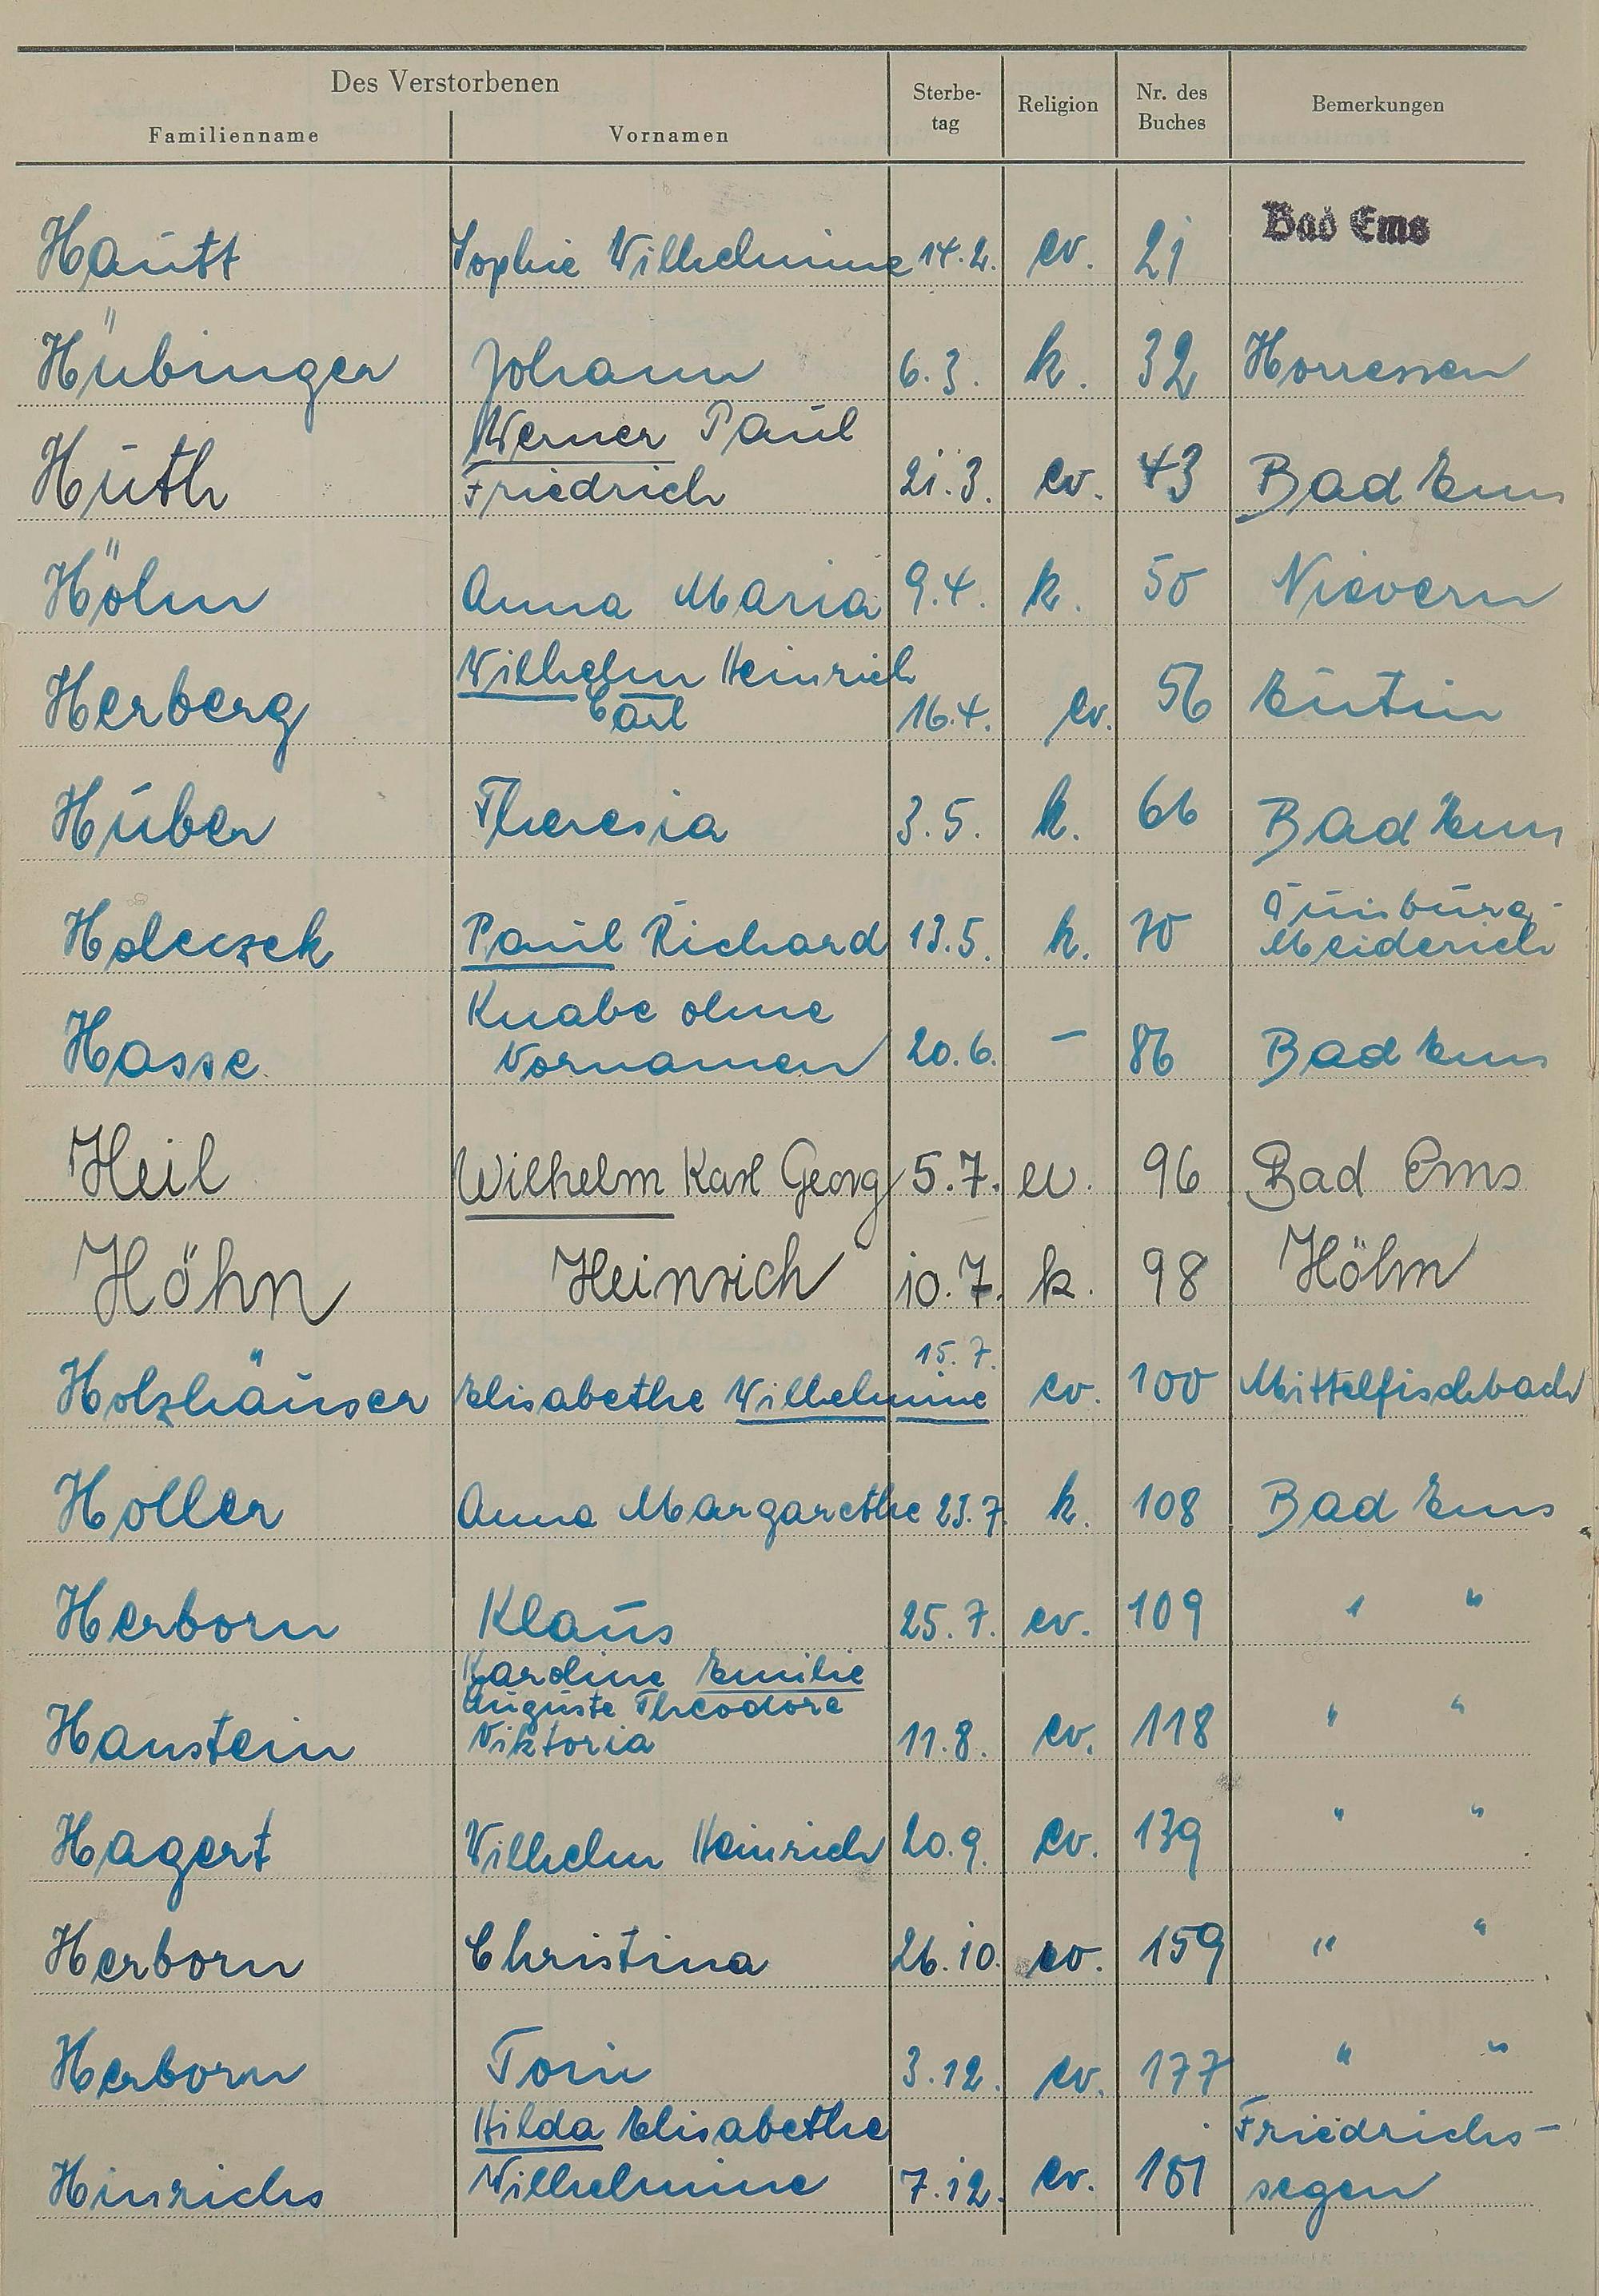 Des Verstorbenen Sterbe- Religion Nr. des Bemerkungen
Familienname Vornamen tag Buches
Bad Ems
Hautt Sophie Wilhelmine 14.2. ev. 21
Hübinger Johann 6.3. k. 32 Horressen
Werner Paul
Huth Friedrich 21.3. ev. 43 Bad Ems
Höhn Anna Maria 9.4. k. 50 Nievern
Wilhelm Heinrich
Herberg Carl 16.4. ev. 56 Eutin
Huber Theresia 3.5. k. 66 Bad Ems
Duisburg-
Holeczek Paul Richard 13.5. k. 70 Meiderich
Knabe ohne
Hasse Vornamen 20.6. – 86 Bad Ems
Heil Wilhelm Karl Georg 5.7. ev. 96 Bad Ems
Höhn Heinrich 10.7. k. 98 Höhn
15.7.
Holzhäuser Elisabethe Wilhelmine ev. 100 Mittelfischbach
Holler Anna Margarethe 23.7. k. 108 Bad Ems
Herborn Klaus 25.7. ev. 109 " "
Karoline Emilie
Auguste Theodore
Hanstein Viktoria 11.8. ev. 118 " "
Hagert Wilhelm Heinrich 20.9. ev. 139 " "
Herborn Christina 26.10. ev. 159 " "
Herborn 3.12. ev. 177 " "
Hilda Elisabethe Friedrichs-
Hinrichs Wilhelmine 7.12. ev. 181 segen